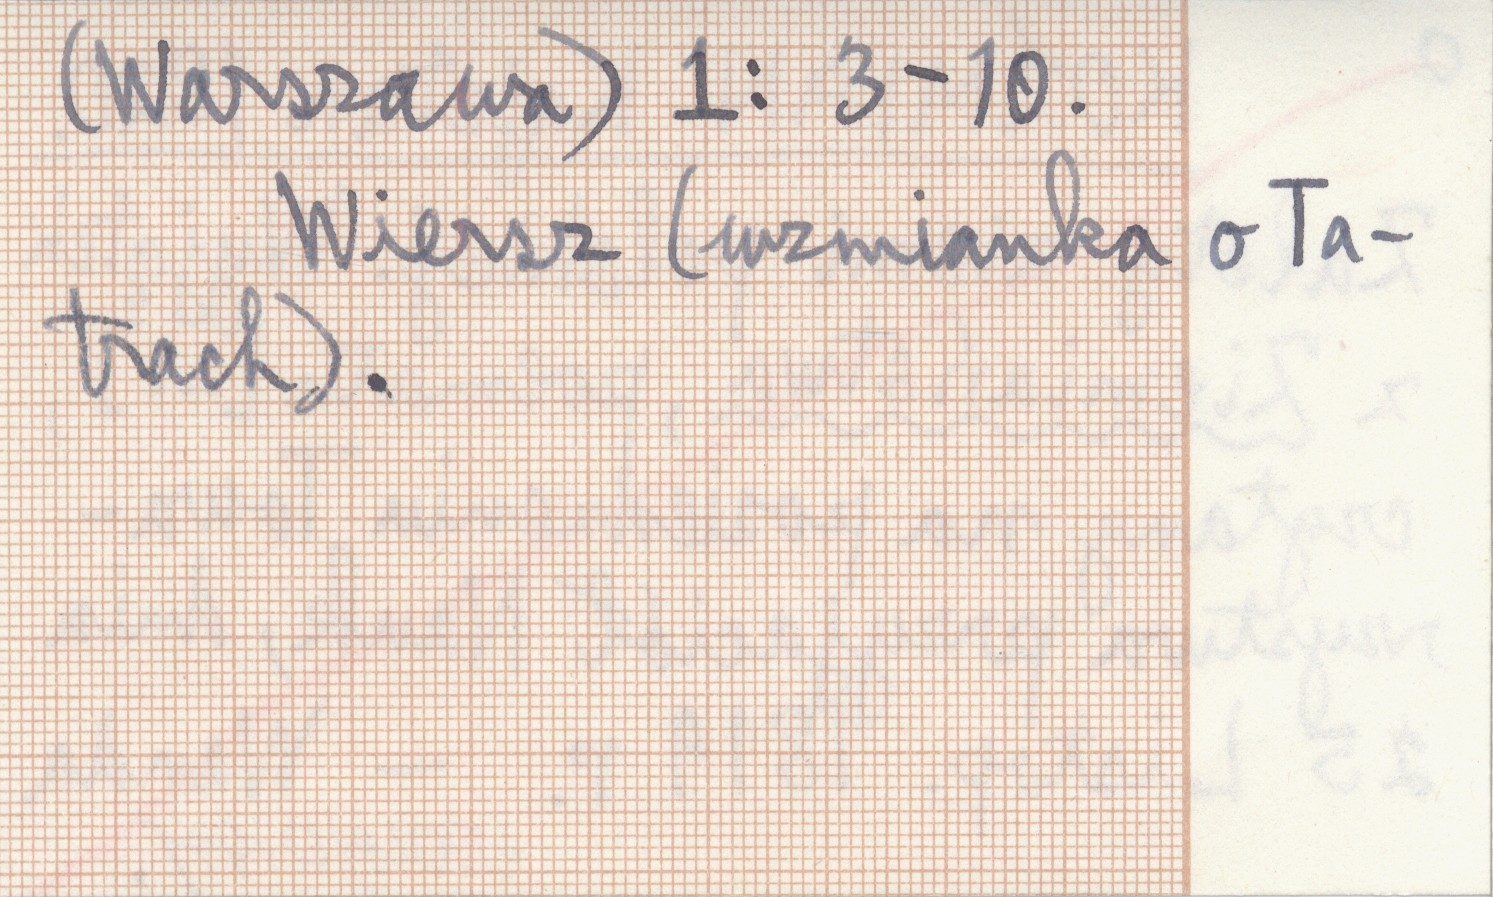 (Warszawa) 1: 3-10.
Wiersz (wzmianka o Ta-
trach).